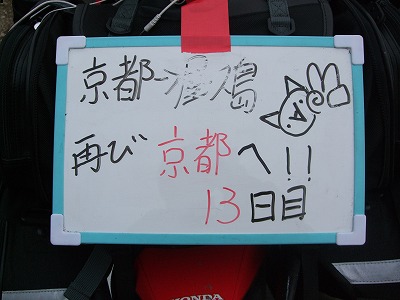 京都
再び京都へ!!
13日目
HONDA